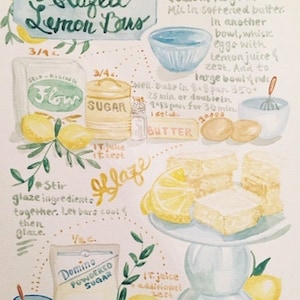 Glazed
Lemon Bars
Mix in softened butter.
In another
bowl, whisk
eggs with
lemon juice &
zest. Add to
large bowl & mix.
3/4 c.
SELF-RISING
Flour
3/4 c.
SUGAR
Well. Bake in 8x8 pan 350°
25 min. or double in
9x13 pan for 30 min.
1 stick
BUTTER
1T. juice
1T. zest
Glaze
* Stir
glaze ingredients
together. Let bars cool &
then
glaze.
1/2 c.
Domino
POWDERED
SUGAR
1T. juice
+ additional
zest